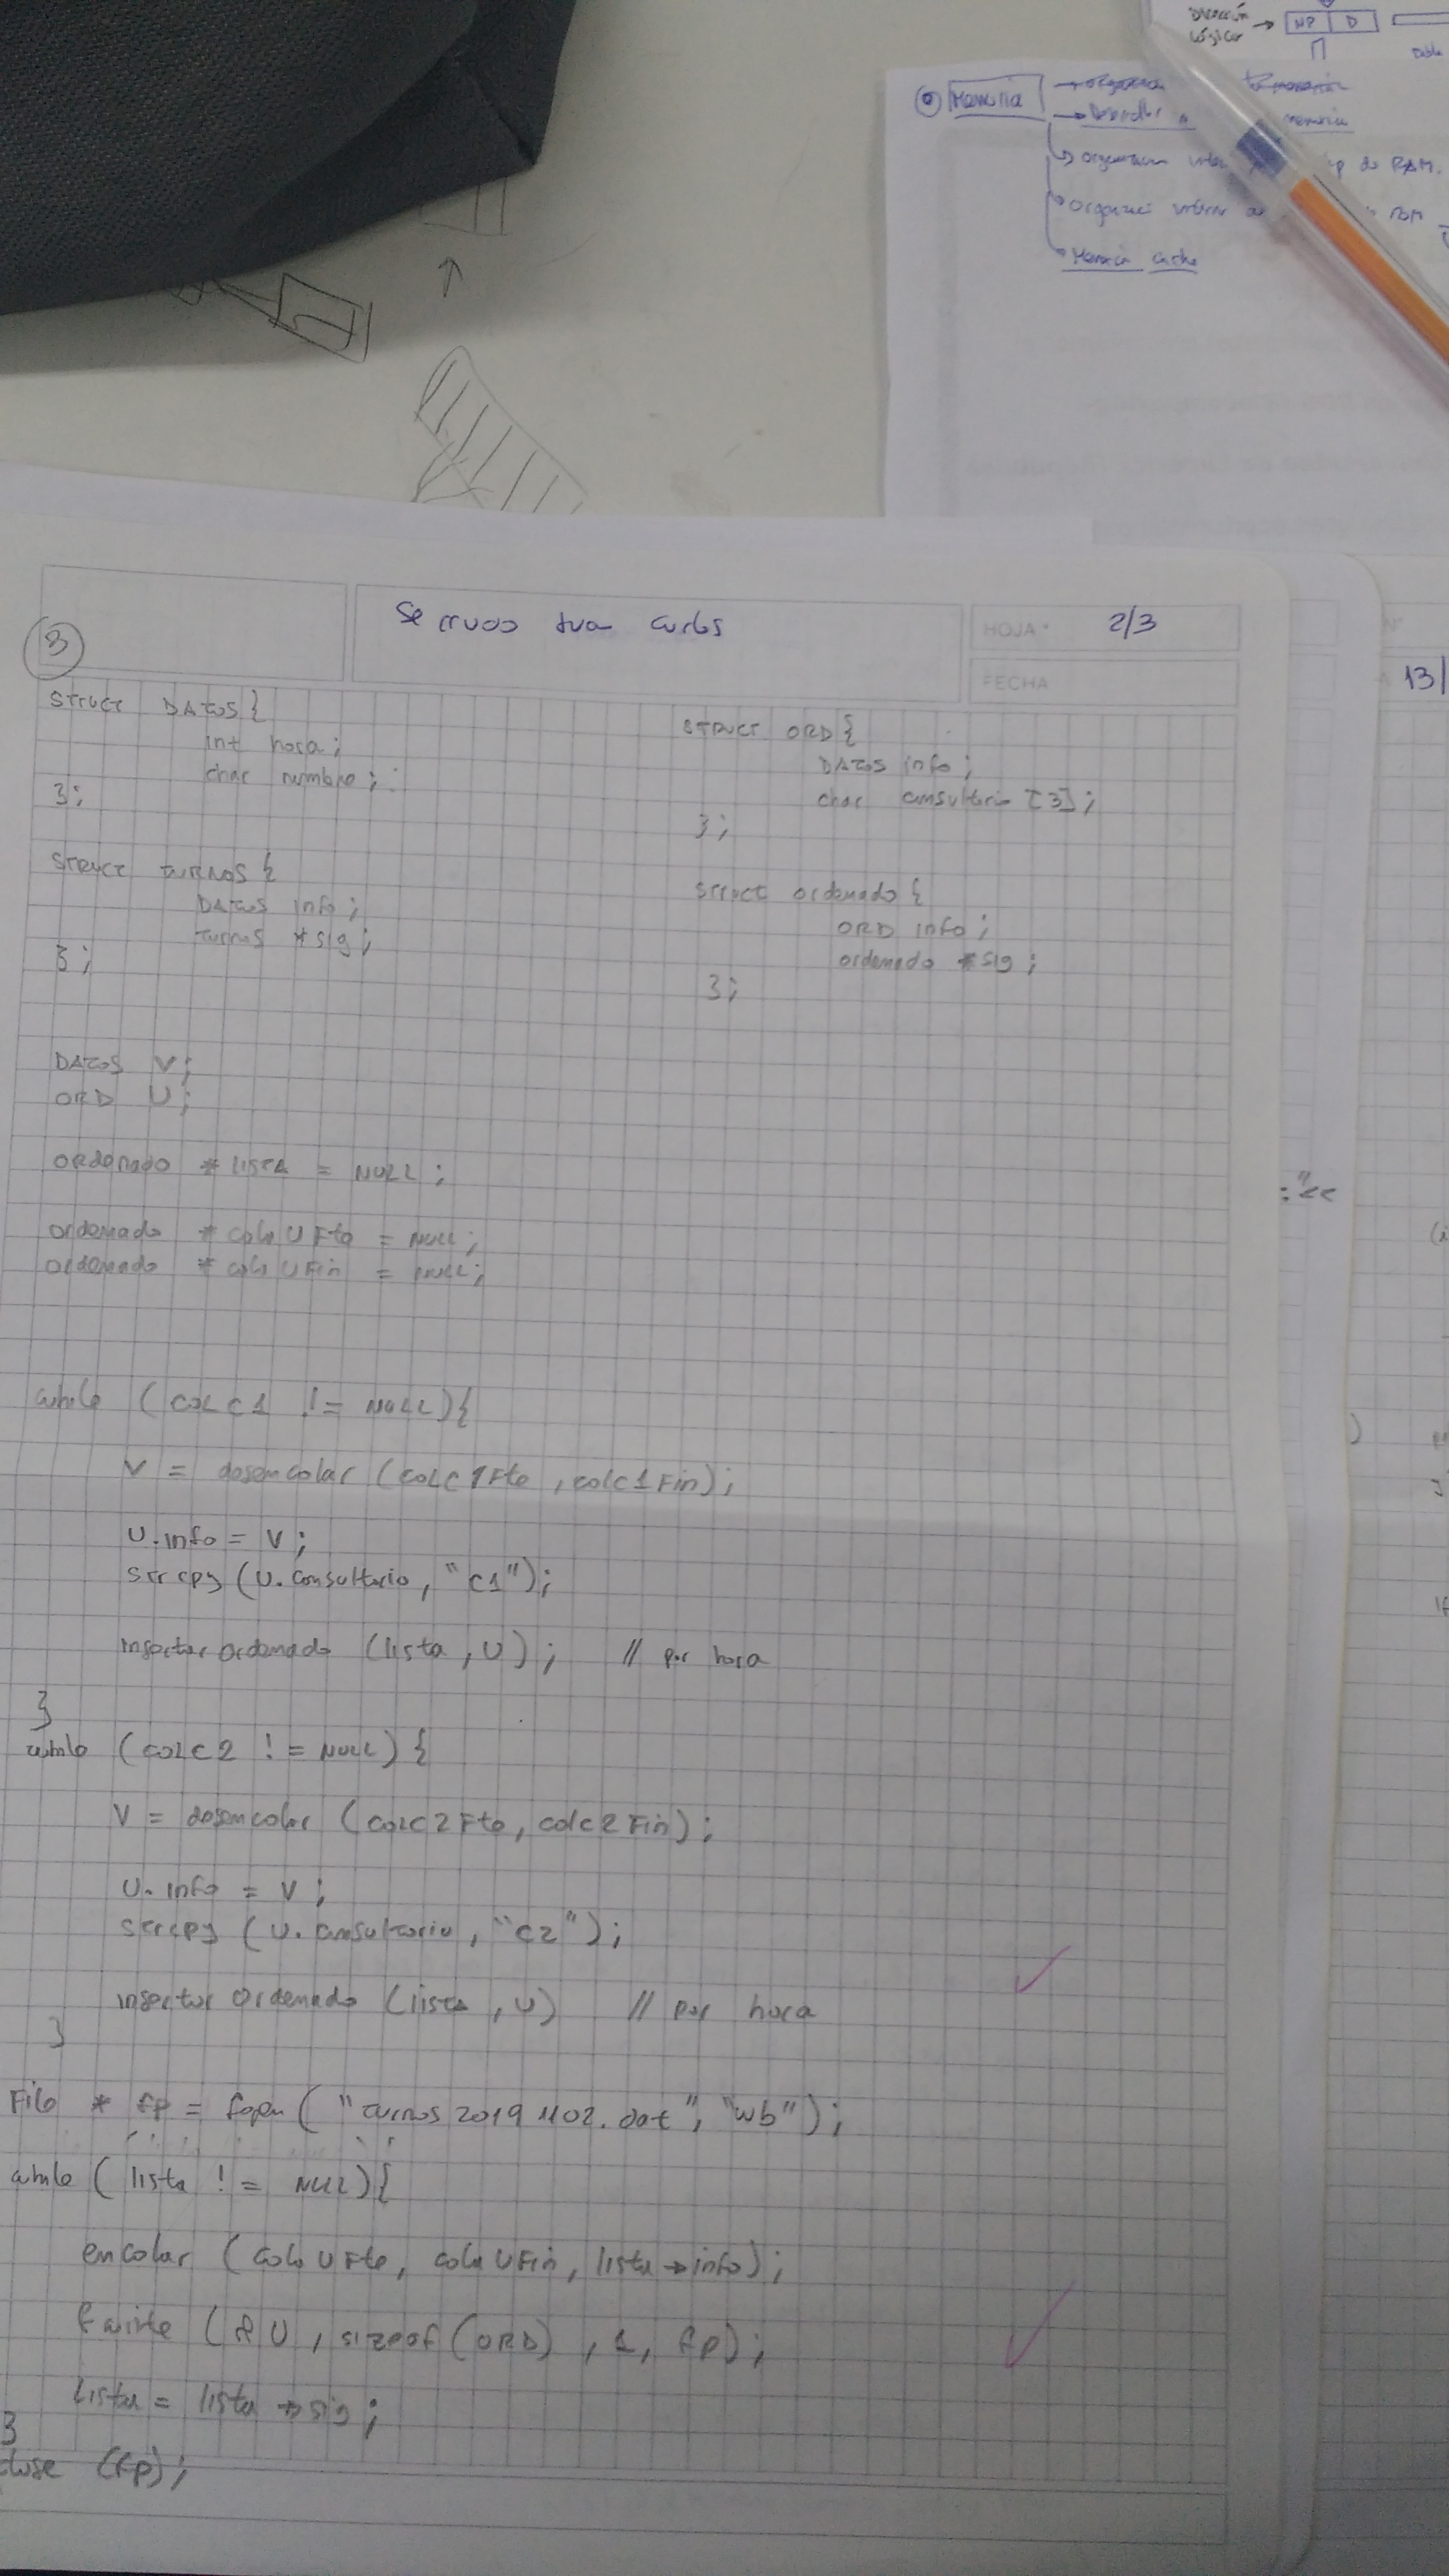 Dirección
Lógica → NP D
Tabla
Memoria
memoria
organización RAM.
Memoria cache
3
HOJA Nº 2/3
FECHA
13/
STRUCT DATOS {
int hora;
char nombre;
};
STRUCT TURNOS {
DATOS info;
turnos *sig;
};
STRUCT ORD {
DATOS info;
char consultorio [3];
};
struct ordenado {
ORD info;
ordenado *sig;
};
DATOS V;
ORD U;
ordenado *LISTA = NULL;
ordenado *colaUFte = NULL;
ordenado *colaUFin = NULL;
:"<<
while (COLC1 != NULL){
V = desencolar (colC1Fte, colC1Fin);
U.info = V;
strcpy (U.consultorio, "C1");
insertar ordenado (lista, U); // por hora
}
while (COLC2 != NULL) {
V = desencolar (colC2Fte, colC2Fin);
U.info = V;
strcpy (U.consultorio, "C2");
insertar Ordenado (lista, U) // por hora
}
File * fp = fopen ("turnos20191102.dat", "wb");
while (lista != NULL){
encolar (colaUFte, colaUFin, lista→info);
fwrite (&U, sizeof(ORD), 1, fp);
lista = lista→sig;
}
close (fp);